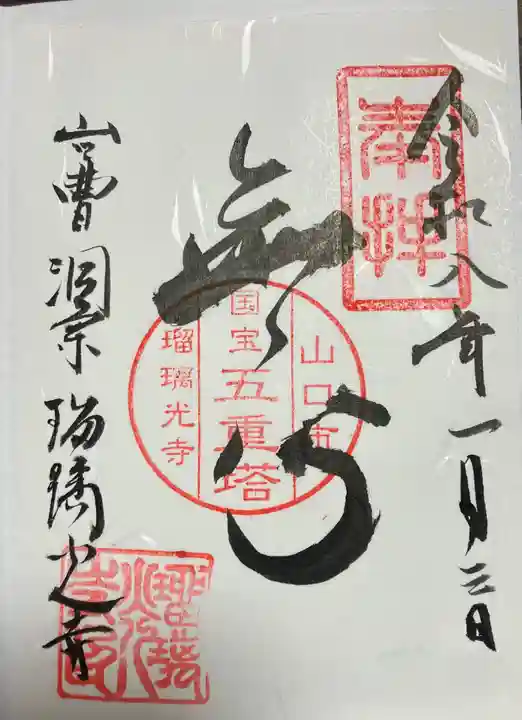 奉拝
令和八年一月三日
無
山口市
国宝五重塔
瑠璃光寺
曹洞宗 瑠璃光寺